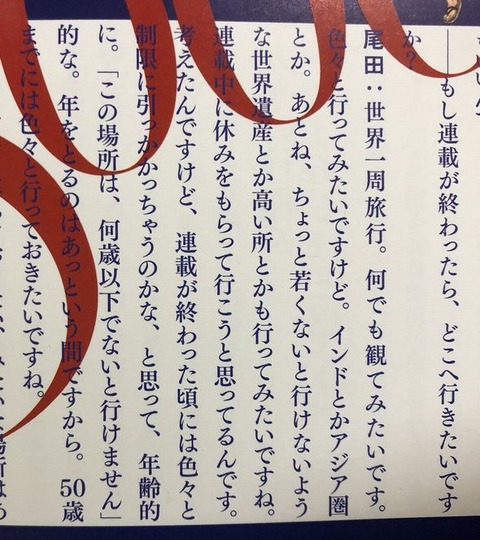 ──もし連載が終わったら、どこへ行きたいです
か？
尾田：世界一周旅行。何でも観てみたいです。
色々と行ってみたいですけど。インドとかアジア圏
とか。あとね、ちょっと若くないと行けないよう
な世界遺産とか高い所とかも行ってみたいですね。
連載中に休みをもらって行こうと思ってるんです。
考えたんですけど、連載が終わった頃には色々と
制限に引っかかっちゃうのかな、と思って、年齢的
に。「この場所は、何歳以下でないと行けません」
的な。年をとるのはあっという間ですから。50歳
までには色々と行っておきたいですね。